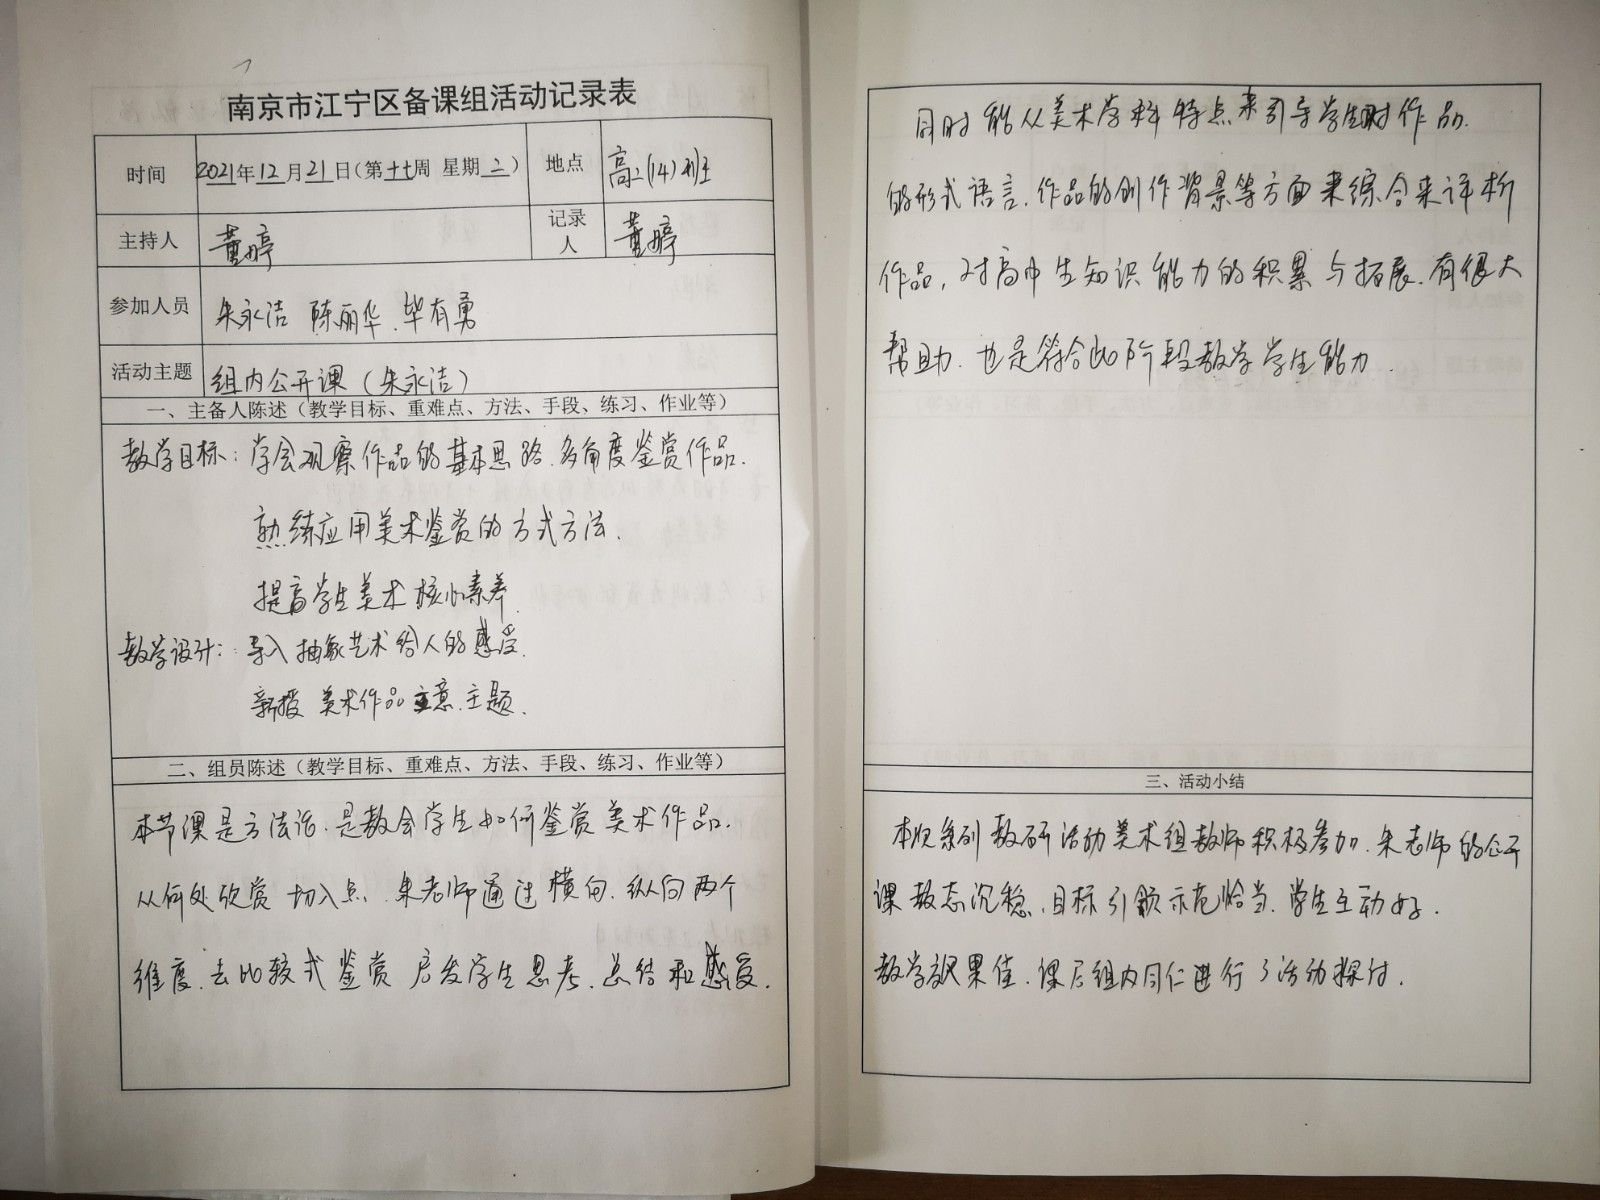 南京市江宁区备课组活动记录表
时间 2021年12月21日(第十七周 星期二) 地点 高二(14)班
主持人 董婷 记录人 董婷
参加人员 朱永洁 陈丽华、毕有勇
活动主题 组内公开课(朱永洁)
一、主备人陈述(教学目标、重难点、方法、手段、练习、作业等)
教学目标:学会观察作品的基本思路、多角度鉴赏作品.
熟练应用美术鉴赏的方式方法.
提高学生美术核心素养.
教学设计:导入 抽象艺术给人的感受.
新授 美术作品 立意、主题.
二、组员陈述(教学目标、重难点、方法、手段、练习、作业等)
本节课是方法论.是教会学生如何鉴赏美术作品.
从何处欣赏 切入点.朱老师通过横向、纵向两个
维度、去比较式鉴赏 启发学生思考、总结和感受.
同时能从美术学科特点来引导学生对作品.
的形式语言、作品的创作背景等方面来综合来评析
作品,对高中生知识能力的积累与拓展、有很大
帮助.也是符合此阶段教学学生能力.
三、活动小结
本次系列教研活动美术组教师积极参加.朱老师的公开
课教态沉稳、目标引领示范恰当、学生互动好.
教学效果佳.课后组内同仁进行了活动探讨.